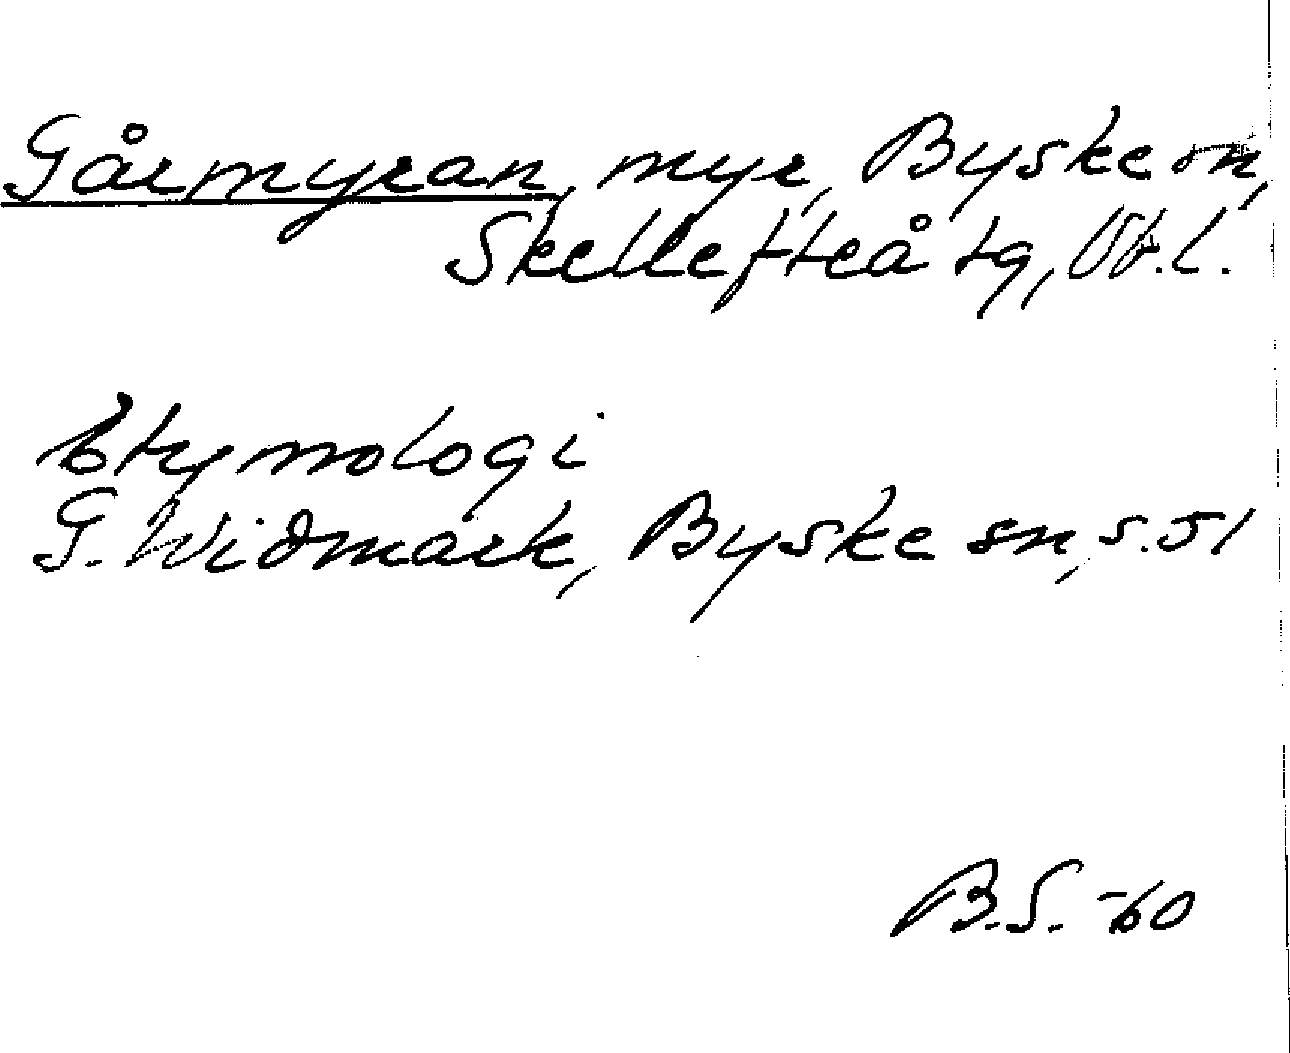 Gårmyran, myr, Byske sn,
Skellefteå tg, Vb.l.
Etymologi
G. Widmark, Byske sn, s. 51
B.S. -60